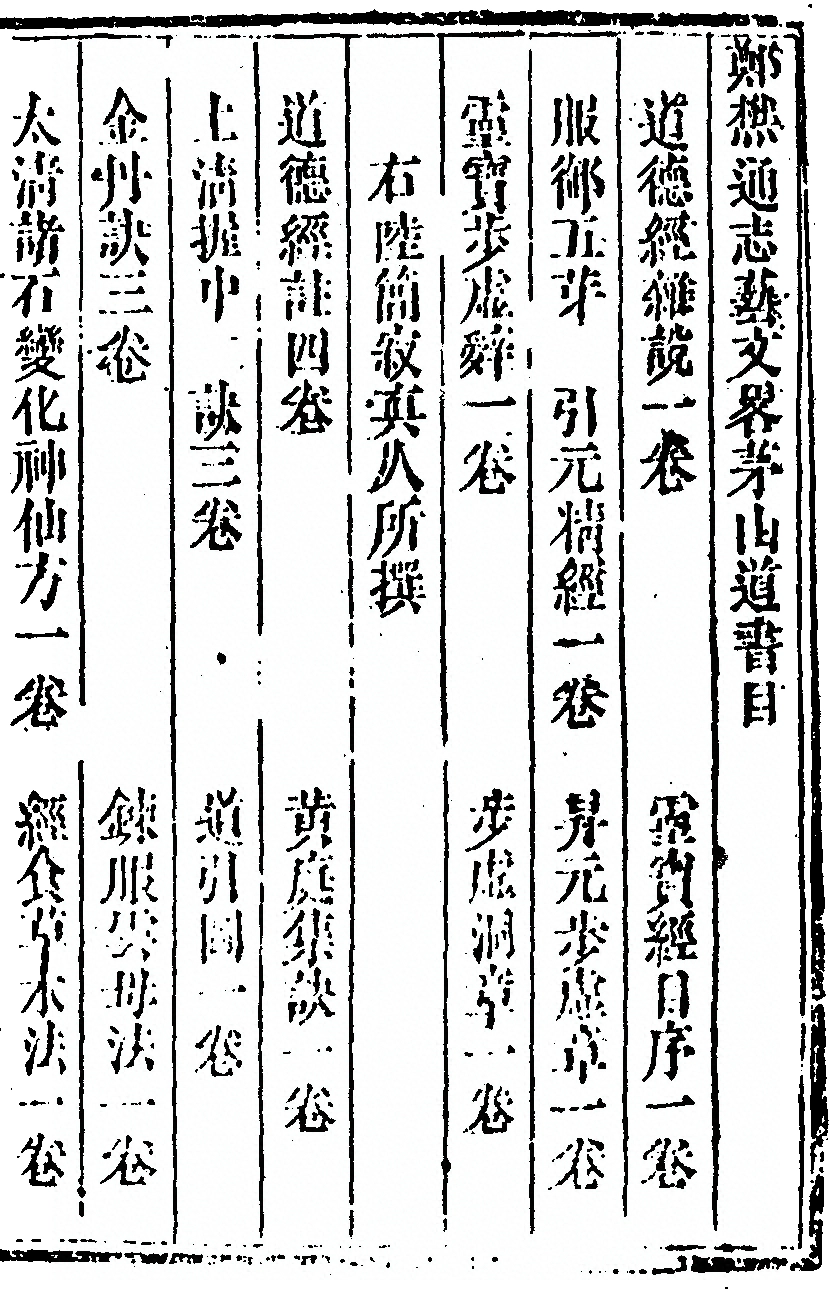 鄭樵通志藝文畧茅山道書目
道德經雜說一卷　靈寶經目序一卷
服御五芽　引元精經一卷　昇元步虛章一卷
靈寶步虛辭一卷　步虛洞章一卷
右陸簡寂真人所撰
道德經註四卷　黃庭集訣一卷
上清握中　訣三卷　道引圖一卷
金丹訣三卷　鍊服雲母法一卷
太清諸石變化神仙方一卷　經食草木法一卷